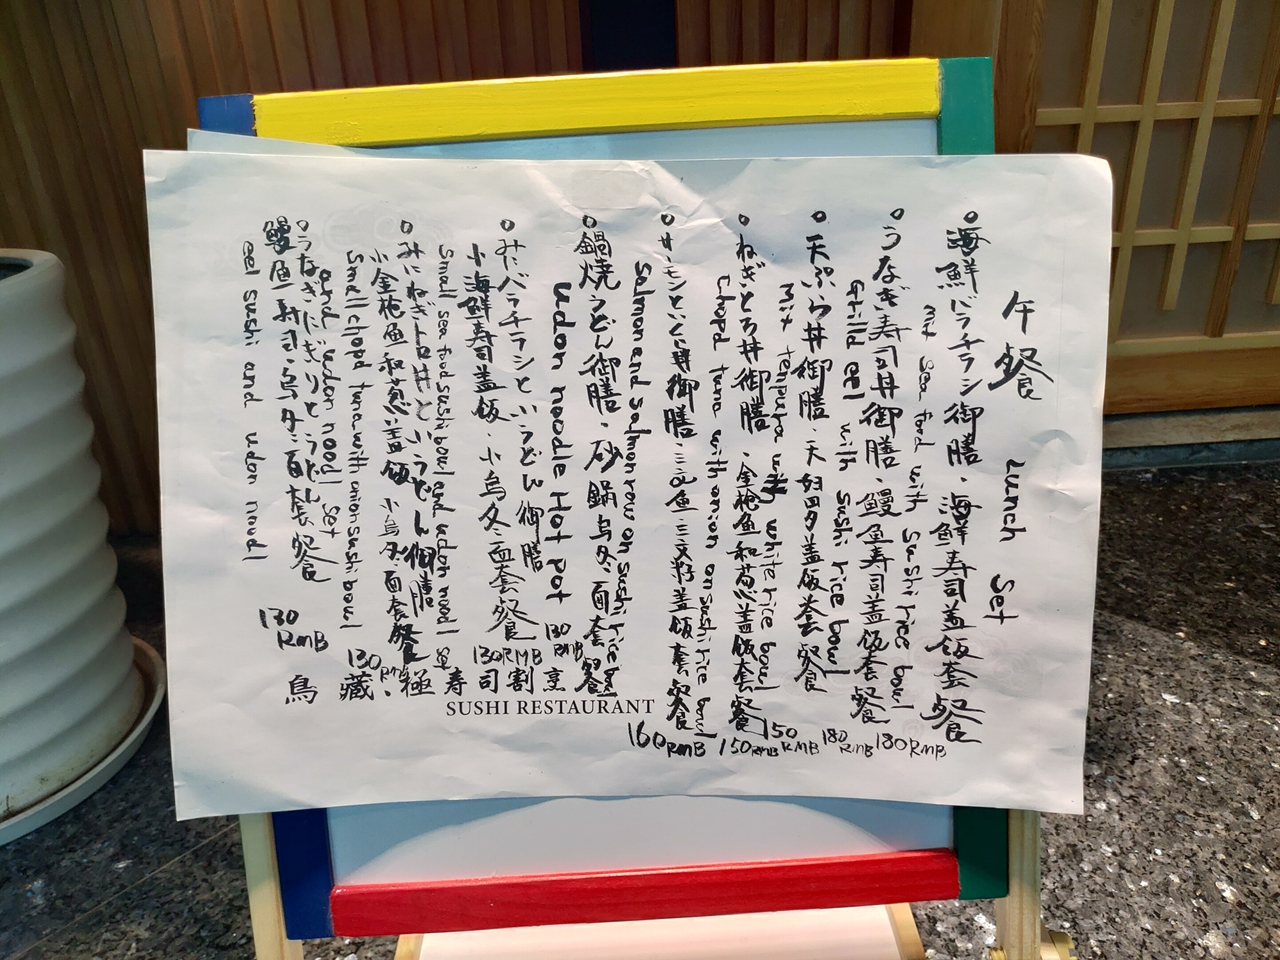 午餐 Lunch Set
海鮮バラチラシ御膳・海鮮寿司盖饭套餐
mix sea food with Sushi rice bowl
180RMB
うなぎ寿司丼御膳・鳗鱼寿司盖饭套餐
Grilld eel with Sushi rice bowl
180RMB
天ぷら丼御膳・天妇罗盖饭套餐
Mix tempura with white rice bowl
150RMB
ねぎとろ丼御膳・金枪鱼和葱盖饭套餐
Chopd tuna with onion on Sushi rice bowl
150RMB
サーモンといくら丼御膳・三文鱼三文籽盖饭套餐
Salmon and Salmon row on Sushi rice bowl
160RMB
鍋焼うどん御膳・砂鍋乌冬面套餐
Udon noodle Hot pot
130RMB
みにバラチラシというどん御膳
小海鮮寿司盖饭・小乌冬面套餐
Small sea food Sushi bowl and udon noodl Set
130RMB
みにねぎトロ丼というどん御膳
小金枪鱼和葱盖饭小乌冬面套餐
Smell chopd tuna with onion Sushi bowl
and udon noodl Set
130RMB
うなぎにぎりとうどん
鳗鱼寿司・乌冬面套餐
eel Sushi and udon noodl
130RMB
鳥藏・極寿司割烹
SUSHI RESTAURANT